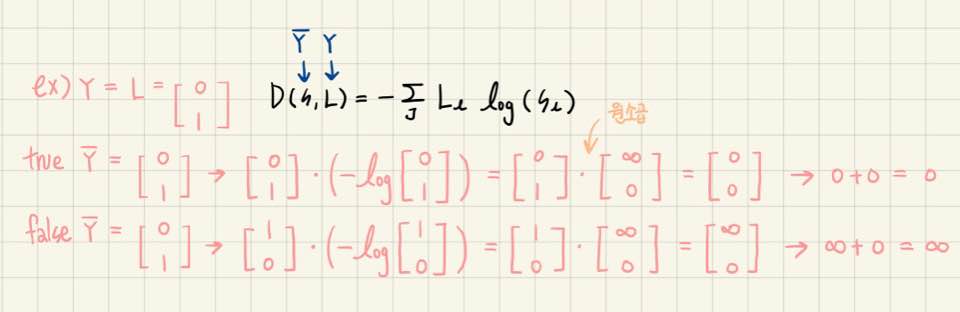 Ȳ Y
↓ ↓
ex) Y = L = [0 1] D(S, L) = - Σ_J L_i log(S_i)
원소곱
true Ȳ = [0 1] → [0 1] · (-log[0 1]) = [0 1] · [∞ 0] = [0 0] → 0+0 = 0
false Ȳ = [0 1] → [1 0] · (-log[1 0]) = [1 0] · [∞ 0] = [∞ 0] → ∞+0 = ∞